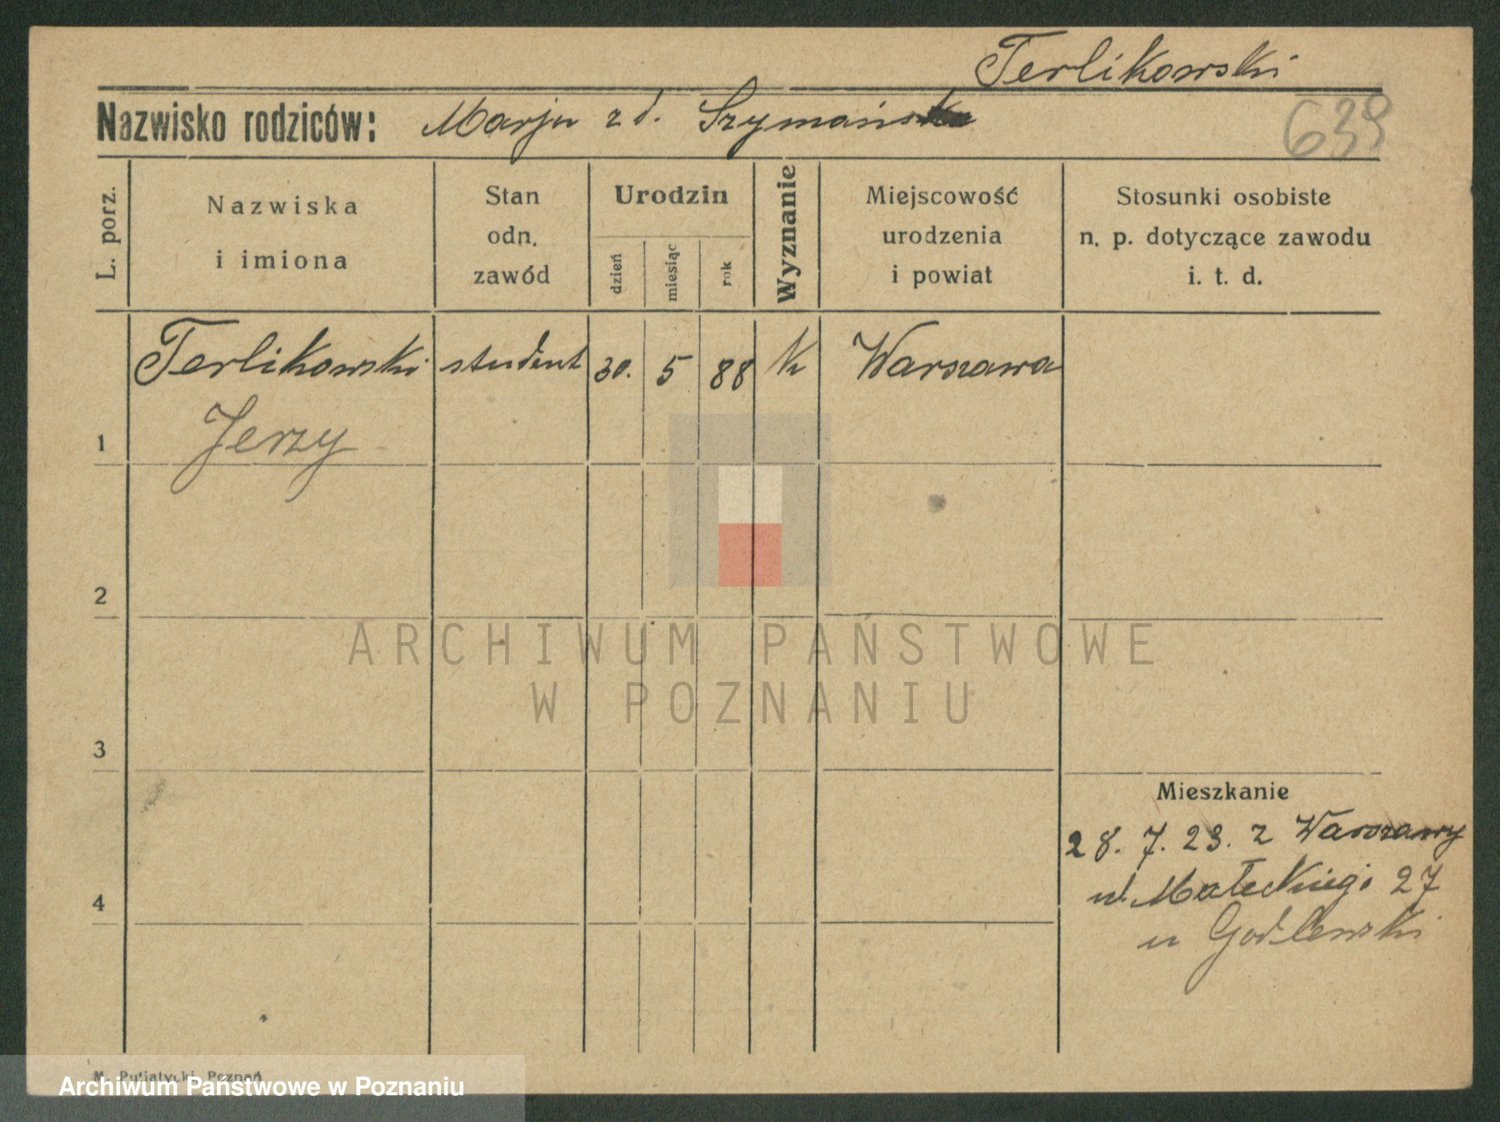 Terlikowski
Nazwisko rodziców: Marja zd. Szymańska
639
L. porz.
Nazwiska
i imiona
Stan
odn.
zawód
Urodzin
dzień
miesiąc
rok
Wyznanie
Miejscowość
urodzenia
i powiat
Stosunki osobiste
n. p. dotyczące zawodu
i. t. d.
Terlikowski student 30. 5 88 k Warszawa
1 Jerzy
2
ARCHIWUM PAŃSTWOWE
W POZNANIU
3
Mieszkanie
28. 7. 23. z Warszawy
4 ul. Małeckiego 27
u Godlewski
M. Putiatycki, Poznań
Archiwum Państwowe w Poznaniu